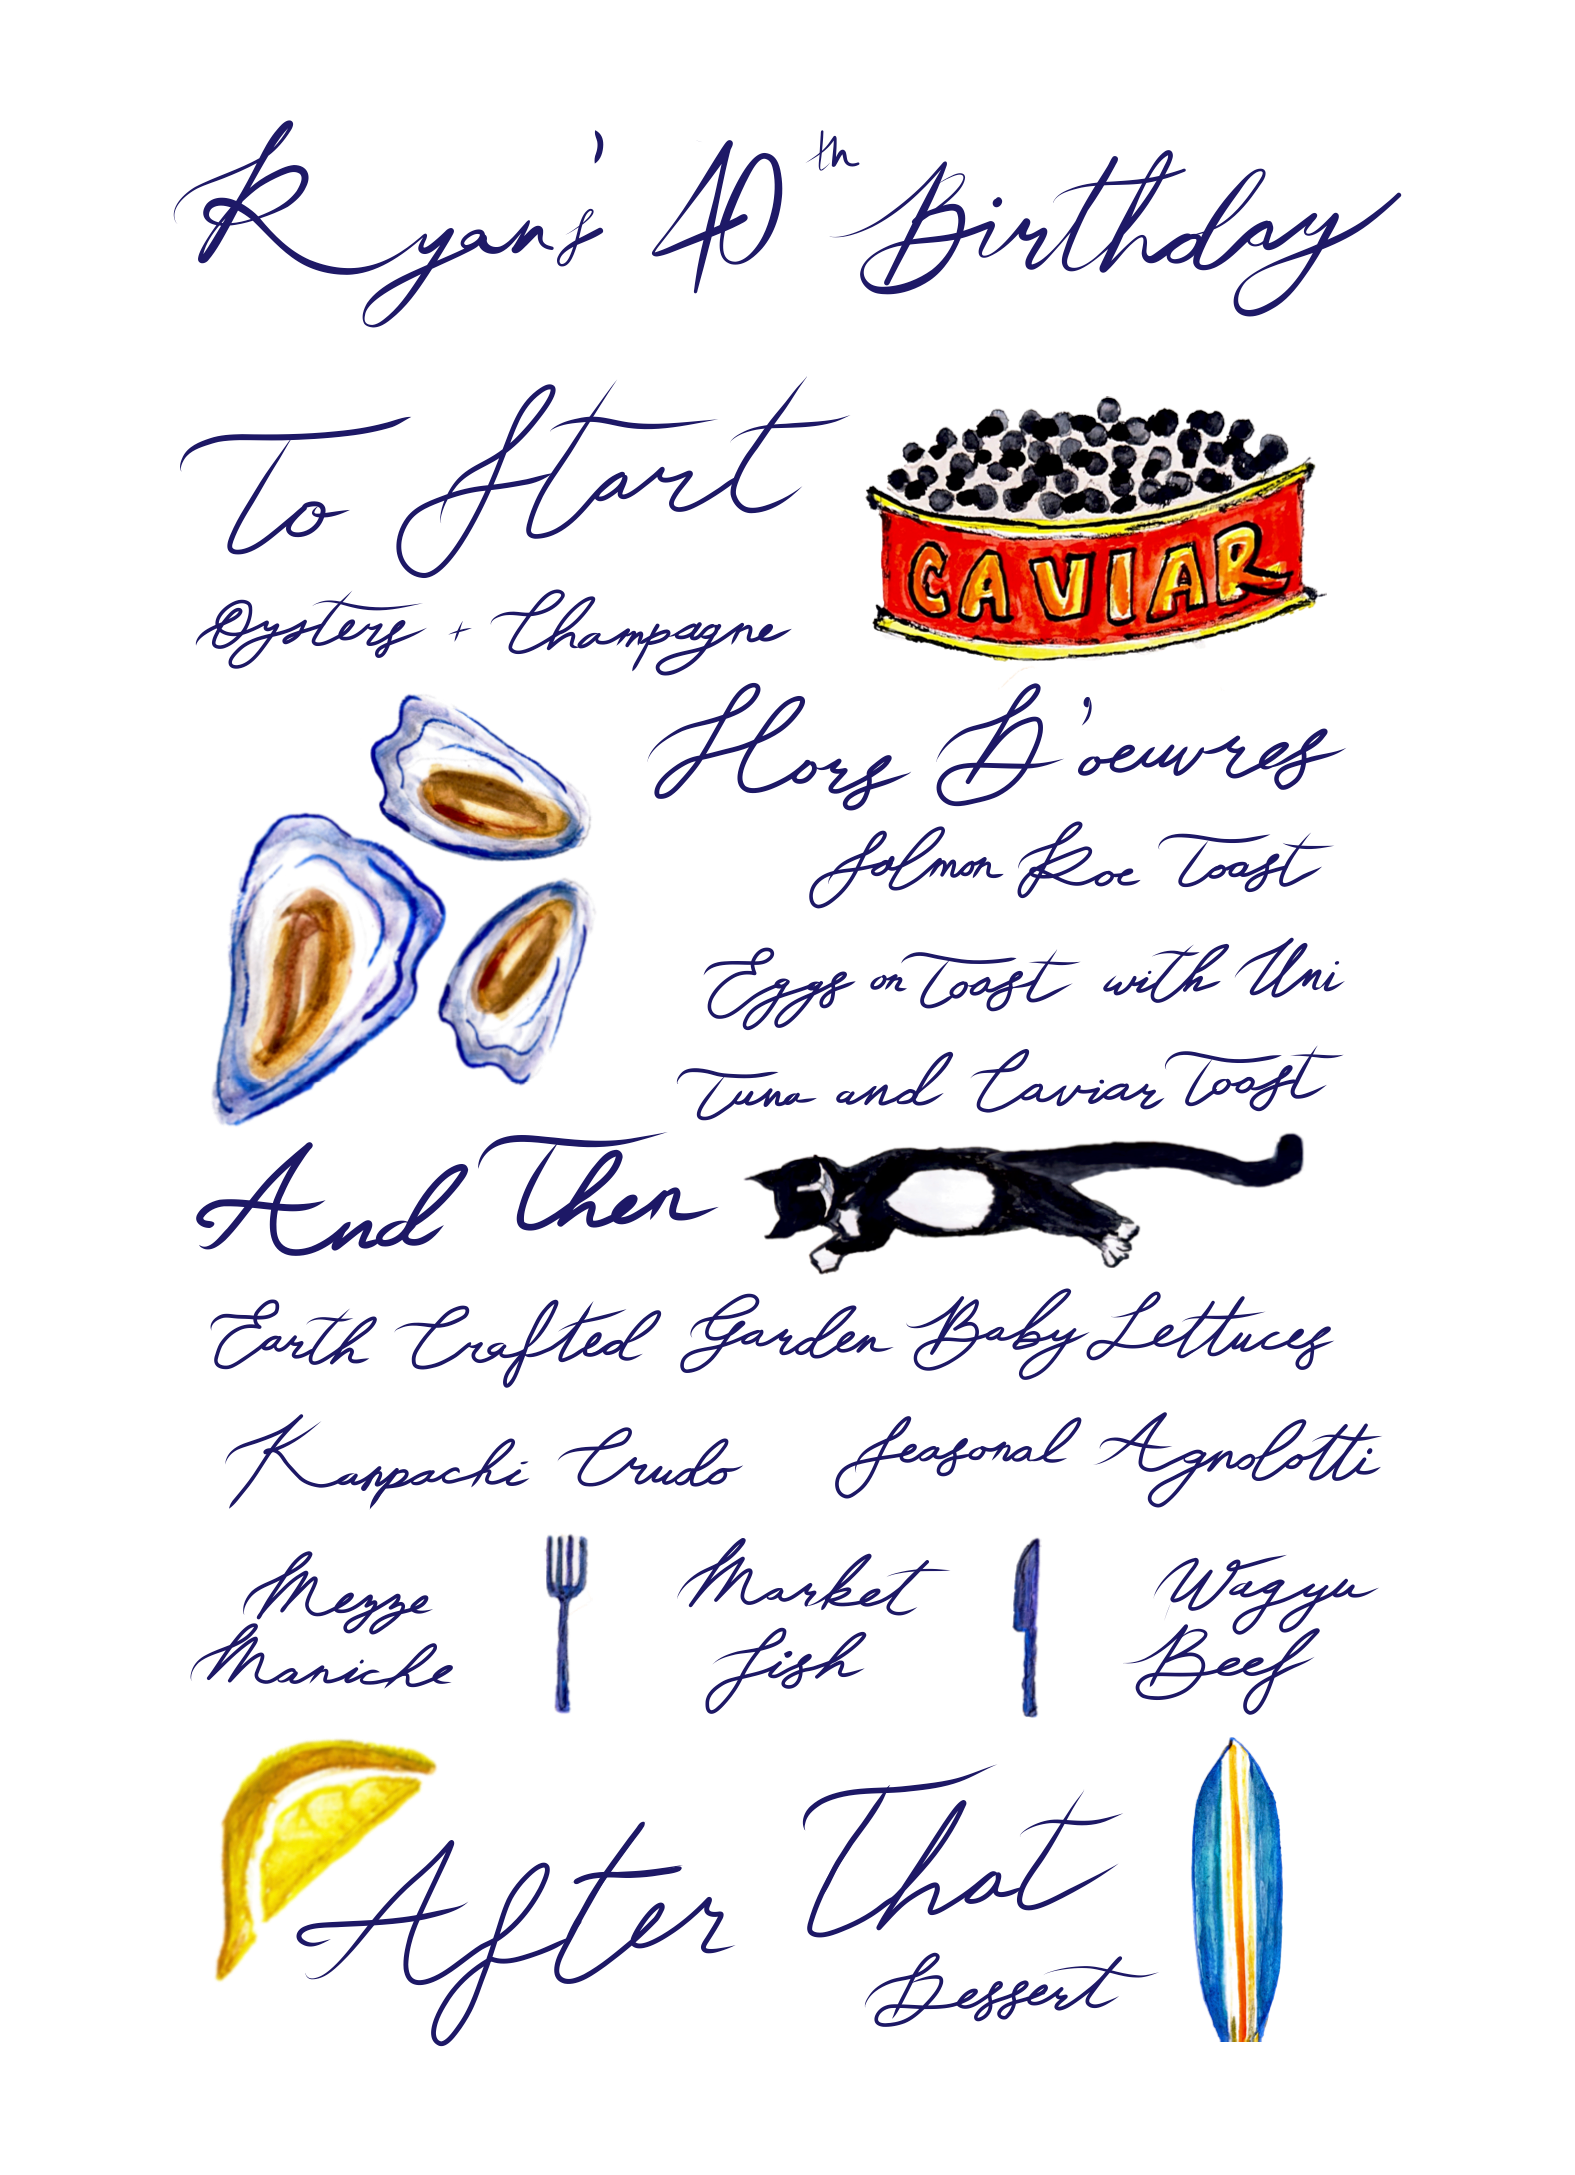 Ryan's 40th Birthday
To Start
CAVIAR
Oysters + Champagne
Hors D'oeuvres
Salmon Roe Toast
Eggs on Toast with Uni
Tuna and Caviar Toast
And Then
Earth Crafted Garden Baby Lettuces
Kanpachi Crudo Seasonal Agnolotti
Mezze
Maniche
Market
Fish
Wagyu
Beef
After That
Dessert